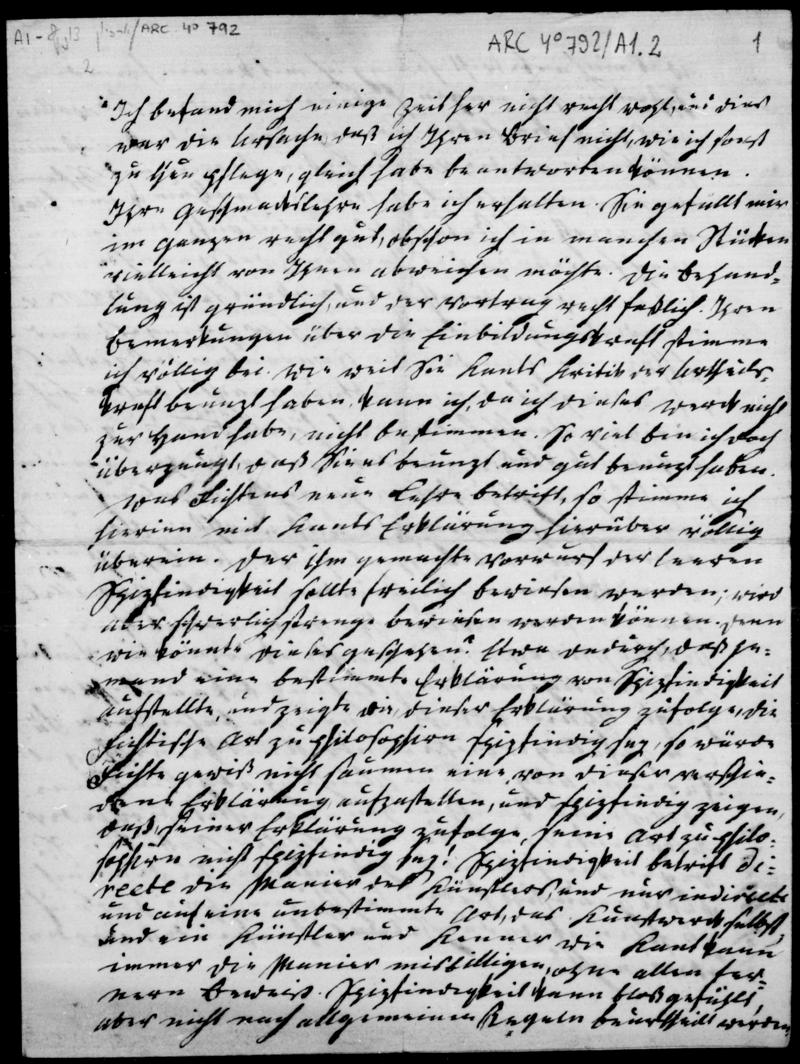 ARC 4° 792
ARC 4° 792/A1.2
1
2
Ich befand mich einige Zeit her nicht recht wohl, und dies
war die Ursache, daß ich Ihren Brief nicht, wie ich sonst
zu thun pflege, gleich habe beantworten können.
Ihre Geschmackslehre habe ich erhalten. Sie gefällt mir
im ganzen recht gut, obschon ich in manchen Stücken
vielleicht von Ihnen abweichen möchte. Die Behand=
lung ist gründlich, und der Vortrag recht faßlich. Ihren
Bemerkungen über die Einbildungskraft stimme
ich völlig bei. Wie weit Sie Kants Kritik der Urtheils=
kraft benuzt haben, kann ich, da ich dieses Werck nicht
zur Hand habe, nicht bestimmen. So viel bin ich doch
überzeugt, daß Sie es benuzt und gut benuzt haben.
Was Fichtens neue Lehre betrift, so stimme ich
hierinn mit Kants Erklärung hierüber völlig
überein. Der ihm gemachte Vorwurf der leeren
Spizfindigkeit sollte freilich bewiesen werden; wird
aber schwerlich strenge bewiesen werden können. Denn
wie könnte dieses geschehen? Etwa dadurch, daß je=
mand eine bestimmte Erklärung von Spizfindigkeit
aufstellte, und zeigte die, dieser Erklärung zufolge, die
Fichtische Art zu philosophirn spizfindig sey, so würde
Fichte gewiß nicht säumen eine, von dieser verschie=
dene Erklärung aufzustellen, und spizfindig zeigen,
daß, seiner Erklärung zufolge, seine Art zu philo=
sophirn nicht spizfindig sey! Spizfindigkeit betrift di=
recte die Manier des Künstlers, und nur indirecte
und auf eine unbestimmte Art, das Kunstwerck selbst,
und ein Künstler und Kenner wie Kant kann
immer die Manier misbilligen, ohne allen fer=
nern Beweiß. Spizfindigkeit kann blos gefühlt,
aber nicht nach allgemeinen Regeln beurtheilt werden